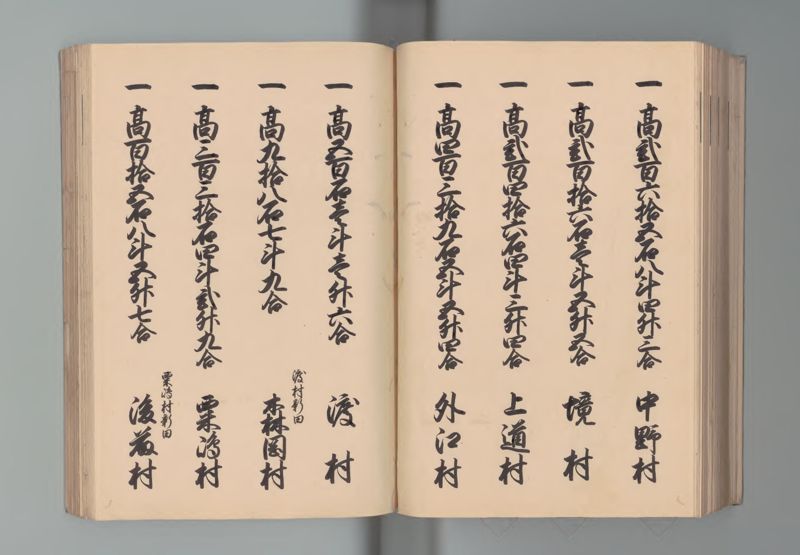 一 高弐百六拾五石八斗四升三合 中野村
一 高弐百拾六石壱斗五升五合 境村
一 高弐百四拾六石四斗三升四合 上道村
一 高四百三拾九石五斗五升四合 外江村
一 高五百石壱斗壱升六合 渡村
一 高九拾八石七斗九合 渡村新田 木林岡村
一 高三百三拾石四斗弐升九合 粟嶋村
一 高百拾五石八斗五升七合 粟嶋村新田 後藤村